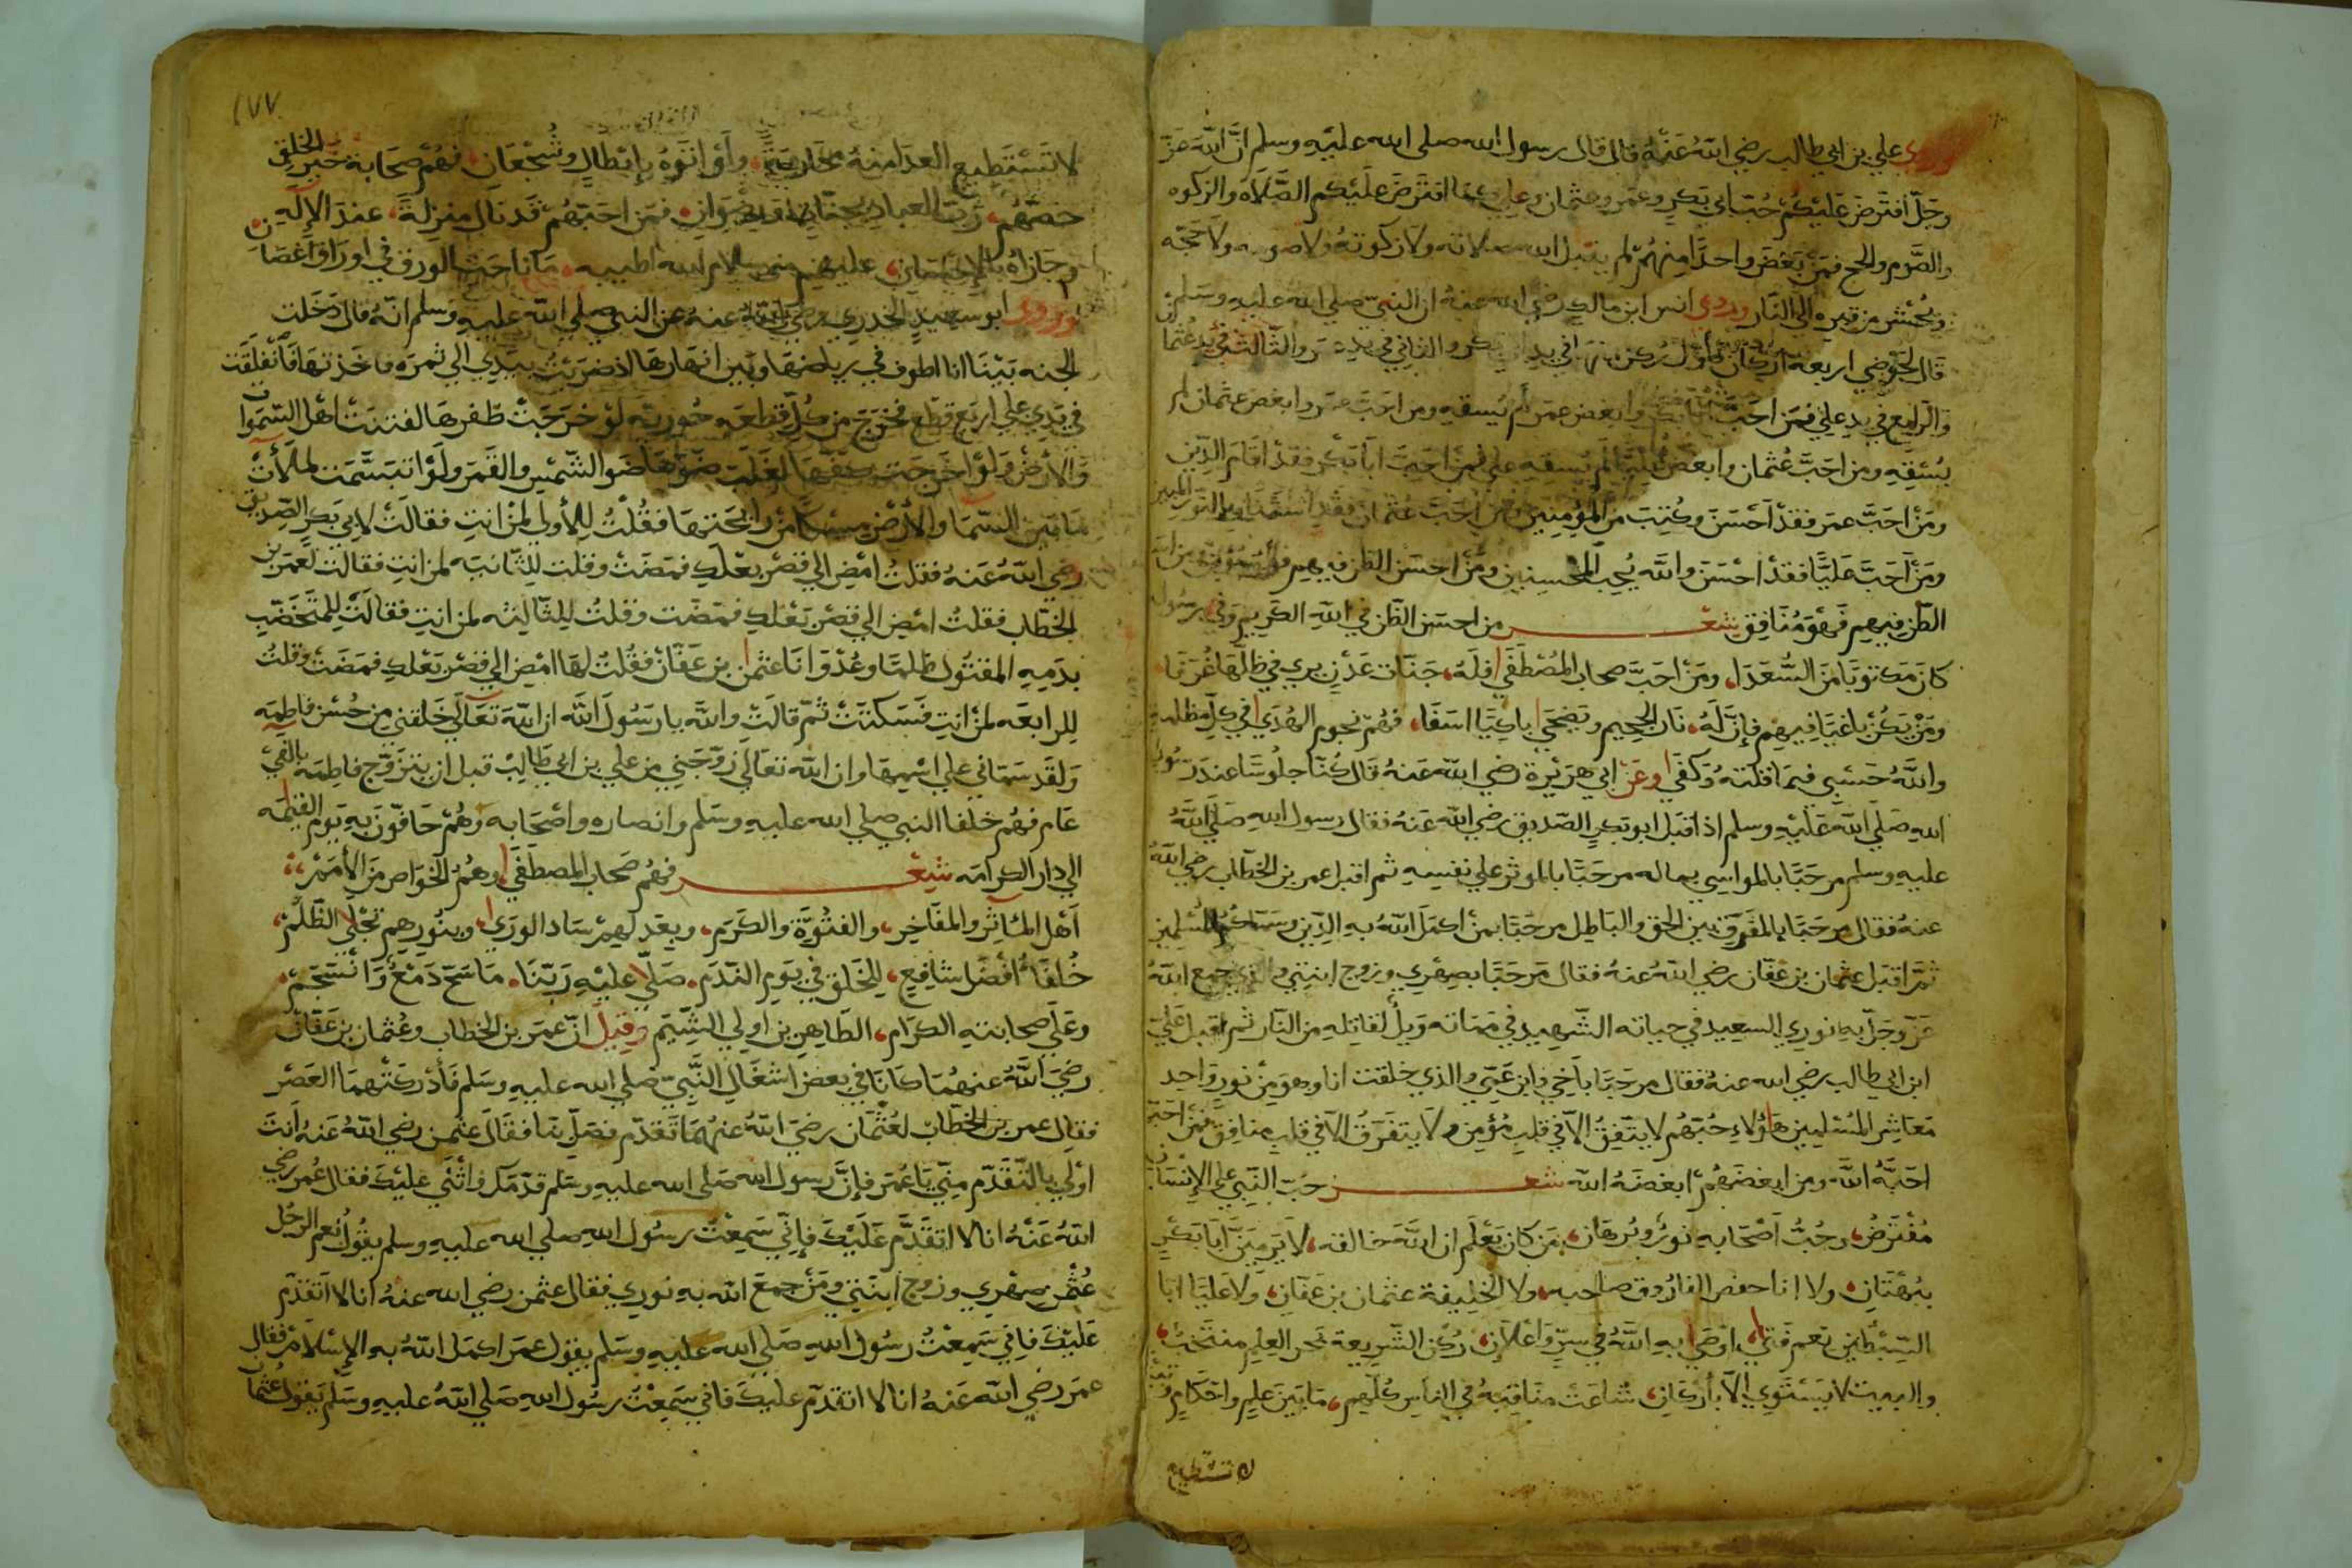 وروى علي بن ابي طالب رضي الله عنه قال قال رسول الله صلى الله عليه وسلم ان الله عز
وجل افترض عليكم حب ابي بكر وعمر وعثمان وعلي كما افترض عليكم الصلاة والزكوه
والصوم والحج فمن بغض واحدا منهم لم يقبل الله صلاته ولا زكوته ولا صومه ولا حجه
ويحشر من قبره الى النار وروى انس ابن مالك رضي الله عنه ان النبي صلى الله عليه وسلم
قال لحوضي اربعة اركان فاول ركن منها في يد ابي بكر والثاني في يد عمر والثالث في يد عثمان
والرابع في يد علي فمن احب ابا بكر وابغض عمر لم يسقيه ومن احب عمر وابغض عثمان لم
يسقيه ومن احب عثمان وابغض عليا لم يسقيه علي فمن احب ابا بكر فقد اقام الدين
ومن احب عمر فقد احسن وكتب من المؤمنين ومن احب عثمان فقد استضا بالنور المبين
ومن احب عليا فقد احسن والله يحب المحسنين ومن احسن الظن فيهم فهو مؤمن ومن اسا
الظن فيهم فهو منافق شعر من احسن الظن في الله الكريم وفي رسوله
كان مكتوبا من السعدا، ومن احب صحاب المصطفى فله، جنات عدن يرى في ظلها غرفا
ومن يكن باغيا فيهم فإن له، نار الجحيم ويضحى باكيا اسفا، فهم نجوم الهدى في كل مظلمة
والله حسبي فيما قلته وكفى وعن ابي هريرة رضي الله عنه قال كنا جلوسا عند رسول
الله صلى الله عليه وسلم اذ اقبل ابو بكر الصديق رضي الله عنه فقال رسول الله صلى الله
عليه وسلم مرحبا بالمواسي بماله مرحبا بالموثر علي نفسه ثم اقبل عمر بن الخطاب رضي الله
عنه فقال مرحبا بالمفرق بين الحق والباطل مرحبا بمن اكمل الله به الدين وسر المسلمين
ثم اقبل عثمان بن عفان رضي الله عنه فقال مرحبا بصهري وزوج ابنتي والذي جمع الله
عز وجل به نوري السعيد في حياته الشهيد في مماته ويل لقاتله من النار ثم اقبل علي
ابن ابي طالب رضي الله عنه فقال مرحبا باخي وابن عمي والذي خلقت انا وهو من نور واحد
معاشر المسلمين هاؤلاء حبهم لا يتفق الا في قلب مؤمن ولا يتفرق الا في قلب منافق فمن احبهم
احبه الله ومن ابغضهم ابغضه الله شعر حب النبي علي الإنسان
مفترض، وحب اصحابه نور وبرهان، من كان يعلم ان الله خالقه، لا يرمين ابا بكر
ببهتان، ولا ابا حفص الفاروق صاحبه، ولا الخليفة عثمان بن عفان، ولا عليا ابا
السبطين نعم فتى، اوصى به الله في سر واعلان، ركن الشريعة بحر العلم منتخب،
والبيت لا يستوي الا بأركان، شاعت مناقبه في الناس كلهم، ما بين علم واحكام
لا تستطيع
١٧٧
لا تستطيع العدا منه محاربة، وأو ابطال وشجعان، فهم صحابة خير الخلق
خصهم، رب العباد بجنات ورضوان، فمن احبهم قد نال منزلة، عند الإله
وجازاه بالإحسان، عليهم من سلام الله اطيبه، ما ناحت الورق في اوراق اغصان
وروى ابو سعيد الخدري رضي الله عنه عن النبي صلى الله عليه وسلم انه قال دخلت
الجنه بينا انا اطوف في رياضها وبين انهارها اذ ضربت بيدي الي ثمره فاخذتها فانفلقت
في يدي علي اربع قطع فخرج من كل قطعه حورية لو خرجت ظفرها لفتنت اهل السموات
والارض ولو اخرجت كفها لغلب ضوها ضو الشمس والقمر ولو تبسمت لملأت
ما بين السما والأرض مسكا من رائحتها فقلت للأولي لمن انت فقالت لابي بكر الصديق
رضي الله عنه فقلت امض الي قصر بعلك فمضت وقلت للثانيه لمن انت فقالت لعمر بن
الخطاب فقلت امض الي قصر بعلك فمضت وقلت للثالثه لمن انت فقالت للمتخضب
بدمه المقتول ظلما وعدوانا عثمن بن عفان فقلت لها امض الي قصر بعلك فمضت وقلت
للرابعه لمن انت فسكتت ثم قالت والله يا رسول الله ان الله تعالى خلقني من حسن فاطمه
ولقد سماني علي اسمها وان الله تعالى زوجني من علي بن ابي طالب قبل ان يتزوج فاطمه بالفي
عام فهم خلفا النبي صلى الله عليه وسلم وانصاره واصحابه وهم حافون به يوم القيمه
الي دار الكرامه شعر فهم صحاب المصطفى، وهم الخواص من الأمم،
اهل المئاثر والمفاخر، والفتوة والكرم، وبعدلهم ساد الورى، وبنورهم تجلى الظلم،
خلفا أفضل شافع، للخلق في يوم الندم، صلى عليه ربنا، ما سح دمع وانسجم،
وعلى صحابته الكرام، الطاهرين اولي الشيم وقيل ان عمر بن الخطاب وعثمان بن عفان
رضي الله عنهما كانا في بعض اشغال النبي صلى الله عليه وسلم فأدركتهما العصر
فقال عمر بن الخطاب لعثمان رضي الله عنهما تقدم فصل بنا فقال عثمن رضي الله عنه انت
اولي بالتقدم مني يا عمر فإن رسول الله صلى الله عليه وسلم قدمك واثنى عليك فقال عمر رضي
الله عنه انا لا اتقدم عليك فإني سمعت رسول الله صلى الله عليه وسلم يقول نعم الرجل
عثمن صهري وزوج ابنتي ومن جمع الله به نوري فقال عثمن رضي الله عنه انا لا اتقدم
عليك فاني سمعت رسول الله صلى الله عليه وسلم يقول عمر اكمل الله به الإسلام فقال
عمر رضي الله عنه انا لا اتقدم عليك فاني سمعت رسول الله صلى الله عليه وسلم يقول عثمان